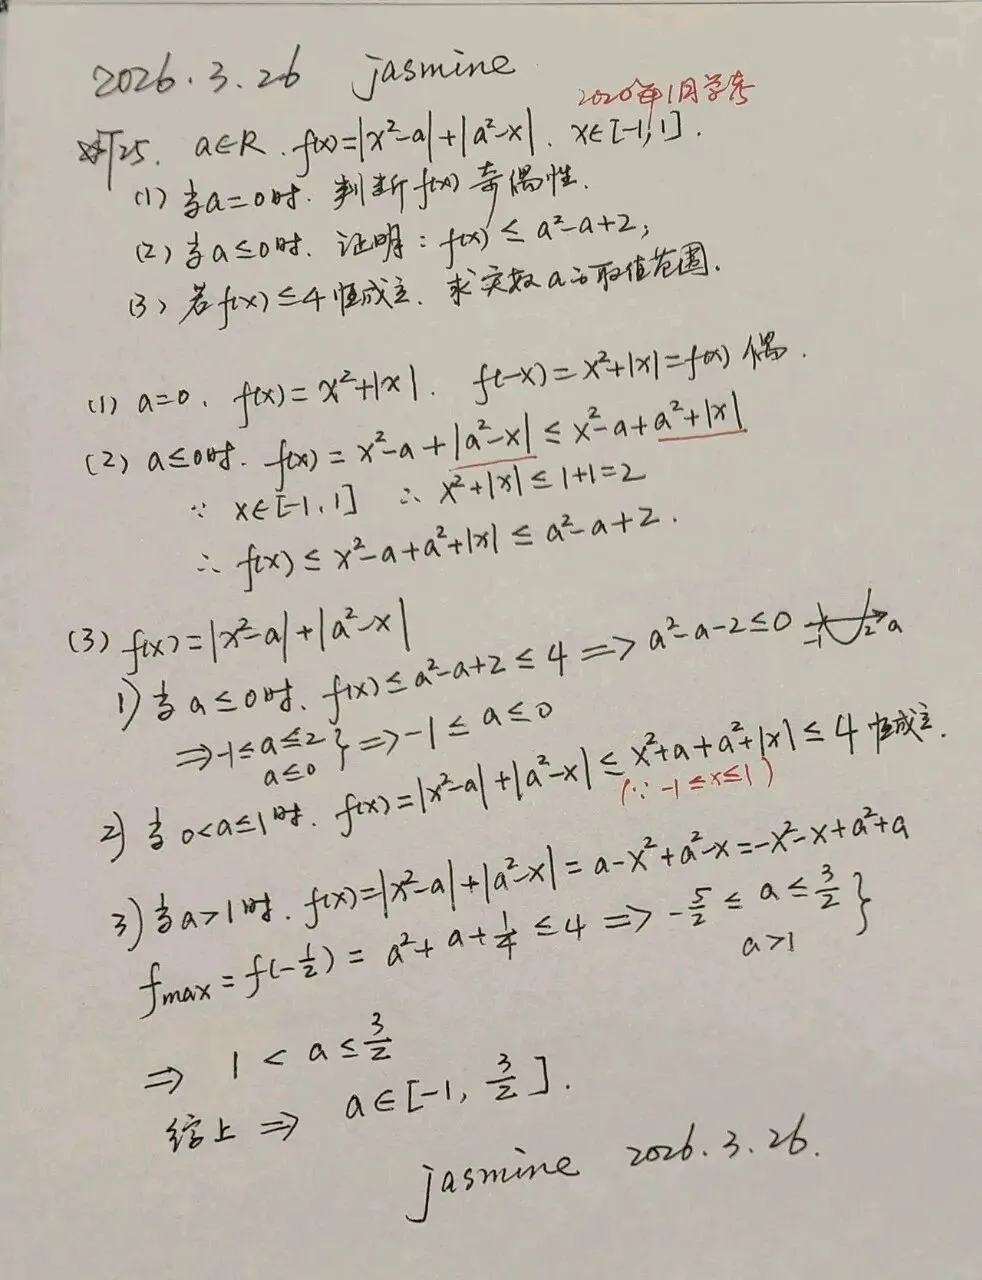 2026.3.26 jasmine
2020年1月学考
25. a∈R. f(x)=|x²-a|+|a²-x|. x∈[-1,1].
(1) 当a=0时. 判断f(x)奇偶性.
(2) 当a≤0时. 证明: f(x)≤a²-a+2;
(3) 若f(x)≤4恒成立. 求实数a的取值范围.
(1) a=0. f(x)=x²+|x|. f(-x)=x²+|x|=f(x) 偶.
(2) a≤0时. f(x)=x²-a+|a²-x|≤x²-a+a²+|x|
∵ x∈[-1,1] ∴ x²+|x|≤1+1=2
∴ f(x)≤x²-a+a²+|x|≤a²-a+2.
(3) f(x)=|x²-a|+|a²-x|
1) 当a≤0时. f(x)≤a²-a+2≤4 => a²-a-2≤0 -1 2 a
=> -1≤a≤2 } => -1≤a≤0
a≤0
2) 当0<a≤1时. f(x)=|x²-a|+|a²-x|≤x²+a+a²+|x|≤4恒成立.
(∵ -1≤x≤1)
3) 当a>1时. f(x)=|x²-a|+|a²-x|=a-x²+a²-x=-x²-x+a²+a
fmax=f(-1/2)=a²+a+1/4≤4 => -5/2≤a≤3/2 }
a>1
=> 1<a≤3/2
综上 => a∈[-1, 3/2].
jasmine 2026.3.26.